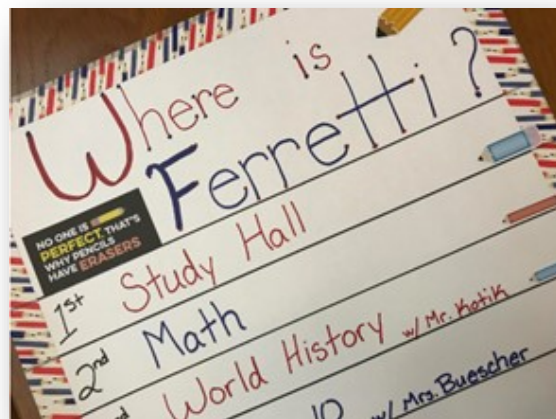 Where is
Ferretti?
NO ONE IS
PERFECT, THAT'S
WHY PENCILS
HAVE ERASERS
1st Study Hall
2nd Math
World History w/ Mr. Kotik
w/ Mrs. Buescher